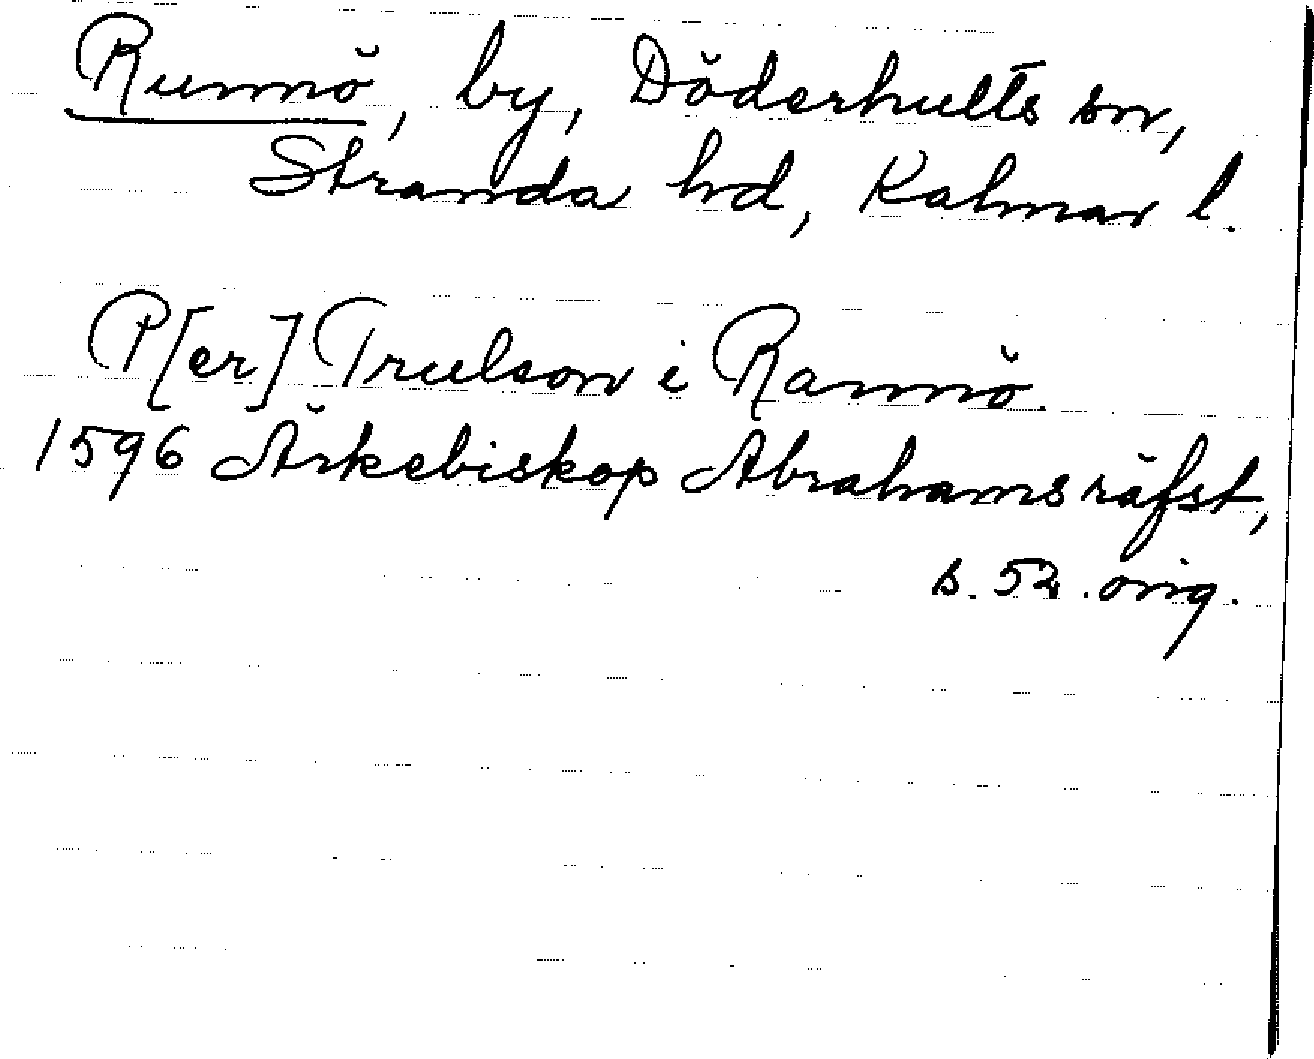 Runnö, by, Döderhults sn,
Stranda hd, Kalmar l.
P[er] Trulson i Rannö.
1596 Ärkebiskop Abrahams räfst,
s. 52. orig.